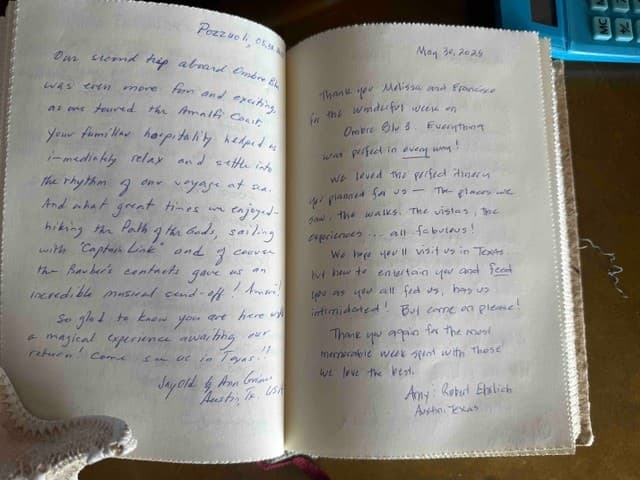 Pozzuoli,
Our second trip aboard Ombre Blu
was even more fun and exciting
as we toured the Amalfi Coast.
Your familiar hospitality helped us
immediately relax and settle into
the rhythm of our voyage at sea.
And what great times we enjoyed -
hiking the Path of the Gods, sailing
with "Captain Link" and of course
the Barber's contacts gave us an
incredible musical send-off!
So glad to know you are here with
a magical experience awaiting our
return! Come see us in Texas!!
& Ann
Austin, Tx. USA
May 30, 2025
Thank you Melissa and Francisco
for the wonderful week on
Ombre Blu 3. Everything
was perfect in every way!
We loved the perfect itinerary
you planned for us — The places we
saw, the walks, the vistas, the
experiences ... all fabulous!
We hope you'll visit us in Texas
but how to entertain you and feed
you as you all fed us, has us
intimidated! But come on please!
Thank you again for the most
memorable week spent with those
we love the best.
Amy & Robert Ehrlich
Austin, Texas
MC